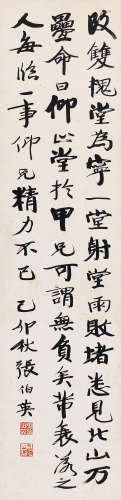 改雙槐堂為寧一堂射堂雨敗堵悉見北山万
疊命曰仰山堂於甲兄可謂無負矣带衰落之
人每臨一事仰兄精力不已乙卯秋張伯英